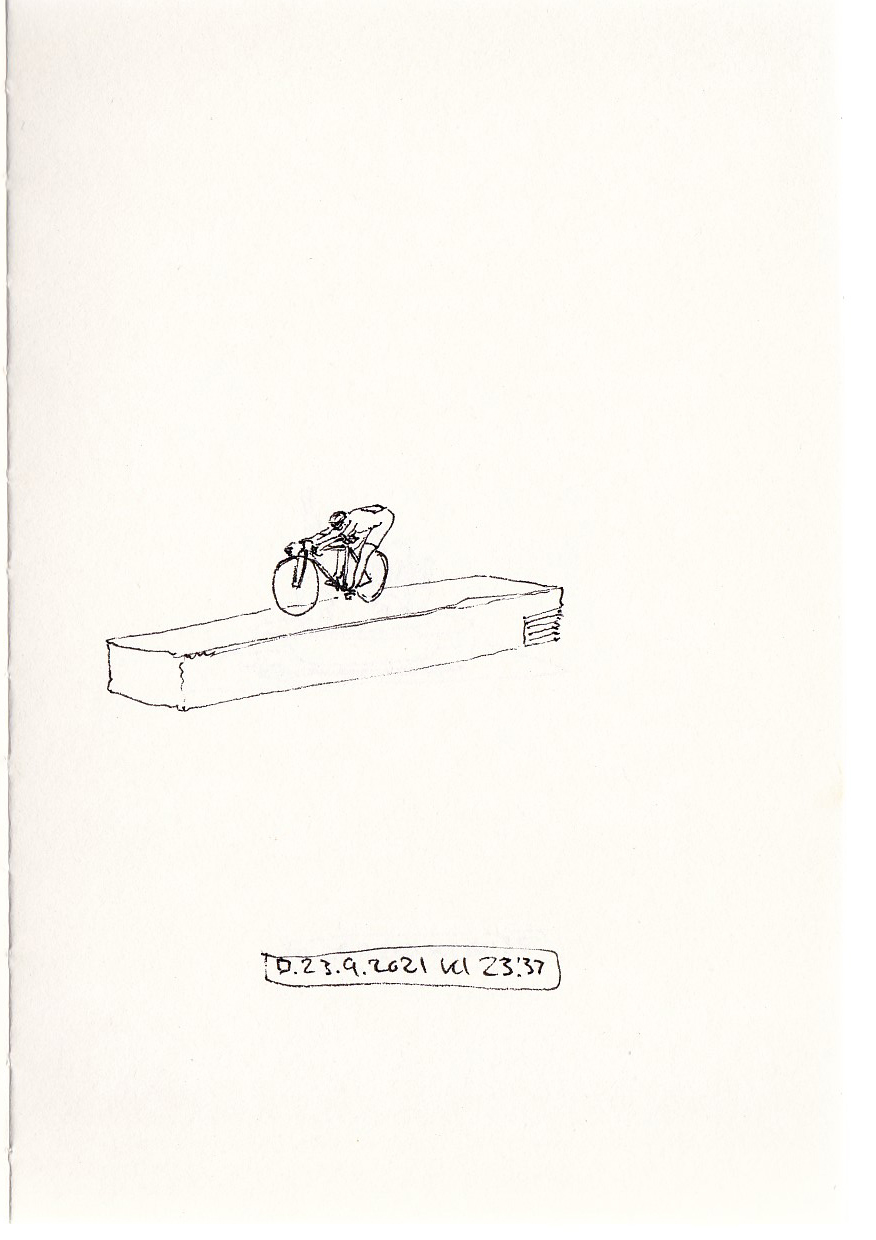 D.23.9.2021 kl 23:37